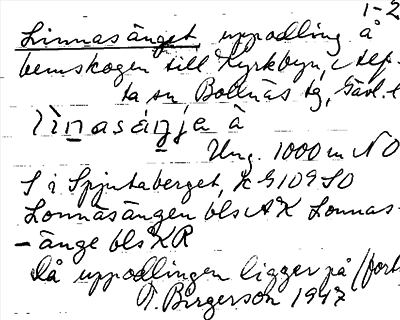 1-2
Linnasänget, uppodling å
hemskogen till Kyrkbyn, i
ta sn Bollnäs tg, Gävl. l
lìnasáŋjen å
Ung. 1000 m NO
S i Spjutaberget, K G109 SO
Lonnäsängen bls AK Lonnas-
-änge bls KR
Då uppodlingen ligger på
T. Birgerson 1947